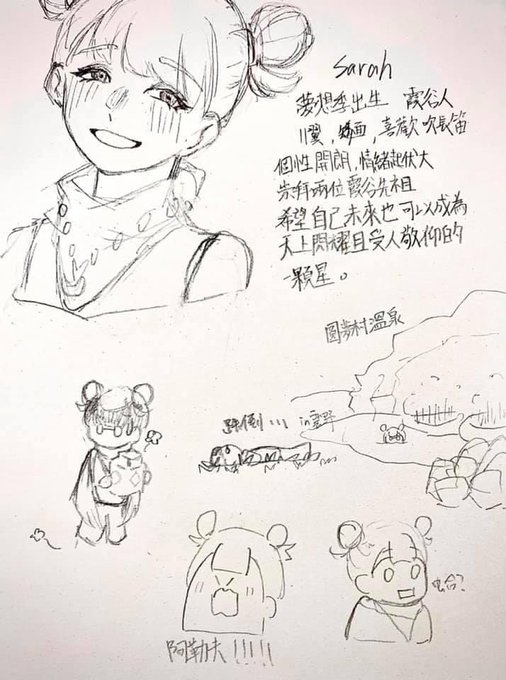 Sarah
夢想季出生 霞谷人
11翼, 喜歡吹長笛
個性開朗,情緒起伏大
崇拜兩位霞谷先祖
希望自己未來也可以成為
天上閃耀且受人敬仰的
一顆星。
圓夢村溫泉
跌倒... in雲野
蛤?
阿勒夫!!!!!